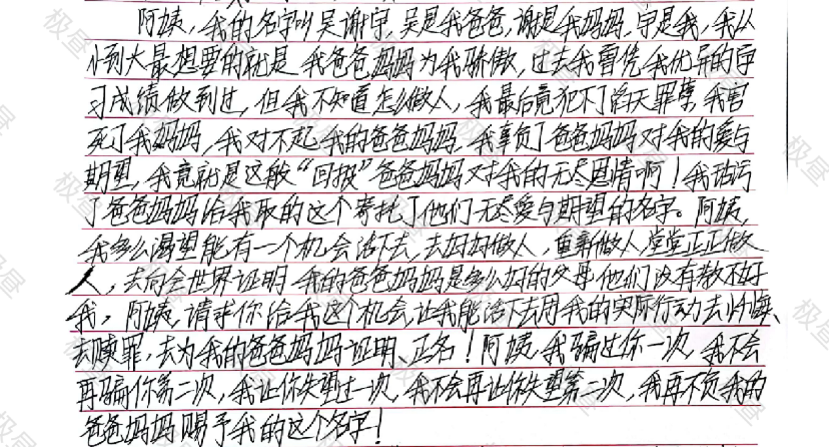 阿姨，我的名字叫吴谢宇，吴是我爸爸，谢是我妈妈，宇是我，我从
小到大最想要的就是 我爸爸妈妈为我骄傲，过去我曾凭我优异的学
习成绩做到过，但我不知道怎么做人，我最后竟犯下了滔天罪孽，我害
死了我妈妈，我对不起我的爸爸妈妈，我辜负了爸爸妈妈对我的爱与
期望，我竟就是这般“回报”爸爸妈妈对我的无尽恩情啊！我玷污
了爸爸妈妈给我取的这个寄托了他们无尽爱与期望的名字。阿姨，
我多么渴望能有一个机会活下去，去好好做人，重新做人，堂堂正正做
人，去向全世界证明 我的爸爸妈妈是多么好的父母，他们没有教不好
我，阿姨，请求你给我这个机会，让我能活下去用我的实际行动去忏悔、
去赎罪，去为我的爸爸妈妈证明、正名！阿姨，我骗过你一次，我不会
再骗你第二次，我让你失望过一次，我不会再让你失望第二次，我再不负我的
爸爸妈妈赐予我的这个名字！
极昼